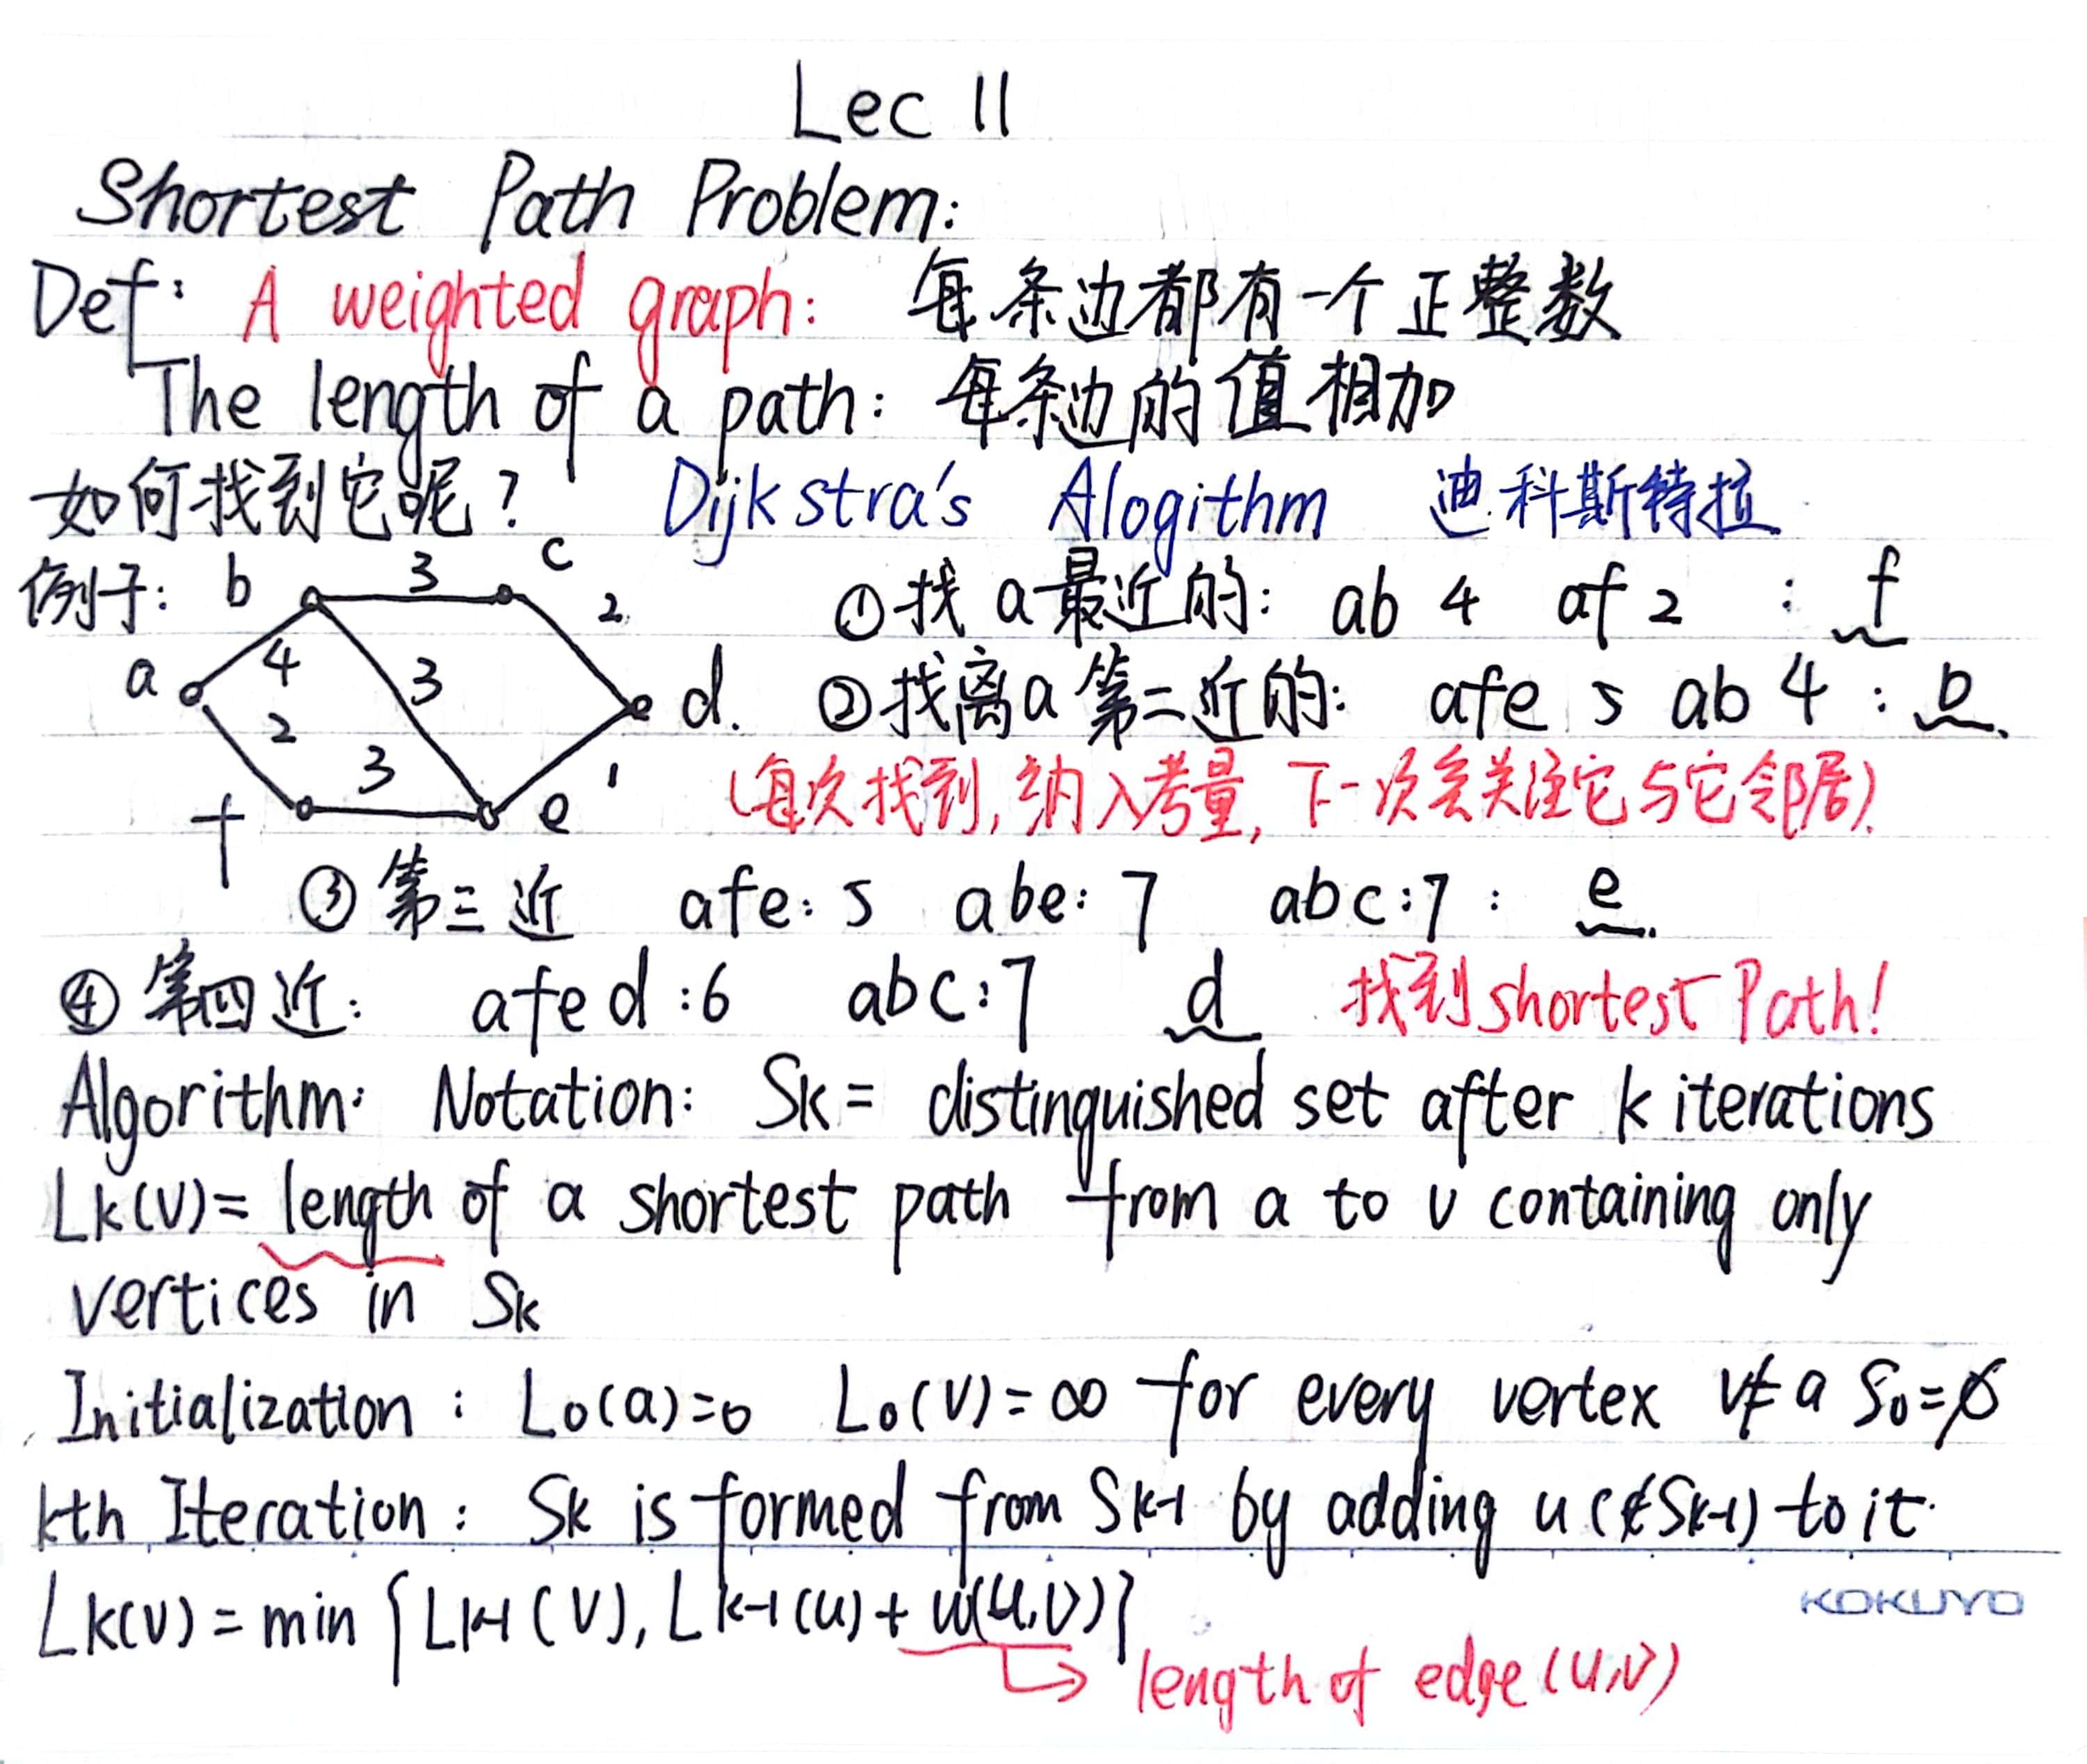 Lec 11
Shortest Path Problem:
Def: A weighted graph: 每条边都有一个正整数
The length of a path: 每条边的值相加
如何找到它呢? Dijkstra's Alogithm 迪科斯特拉
例子: b 3 c 2 ①找a最近的: ab 4 af 2 : f
a 4 3 d. ②找离a第二近的: afe 5 ab 4 : b.
2 3 1 (每次找到, 纳入考量, 下一次会关注它与它邻居).
f e
③第三近 afe: 5 abe: 7 abc:7 : e.
④第四近: afed:6 abc:7 d 找到shortest Path!
Algorithm: Notation: Sk = distinguished set after k iterations
Lk(v) = length of a shortest path from a to v containing only
vertices in Sk
Initialization : L0(a)=0 L0(v)=∞ for every vertex v≠a S0=∅
kth Iteration : Sk is formed from Sk-1 by adding u (∉Sk-1) to it.
Lk(v) = min {Lk-1(v), Lk-1(u) + w(u,v)}
KOKUYO
length of edge (u,v)